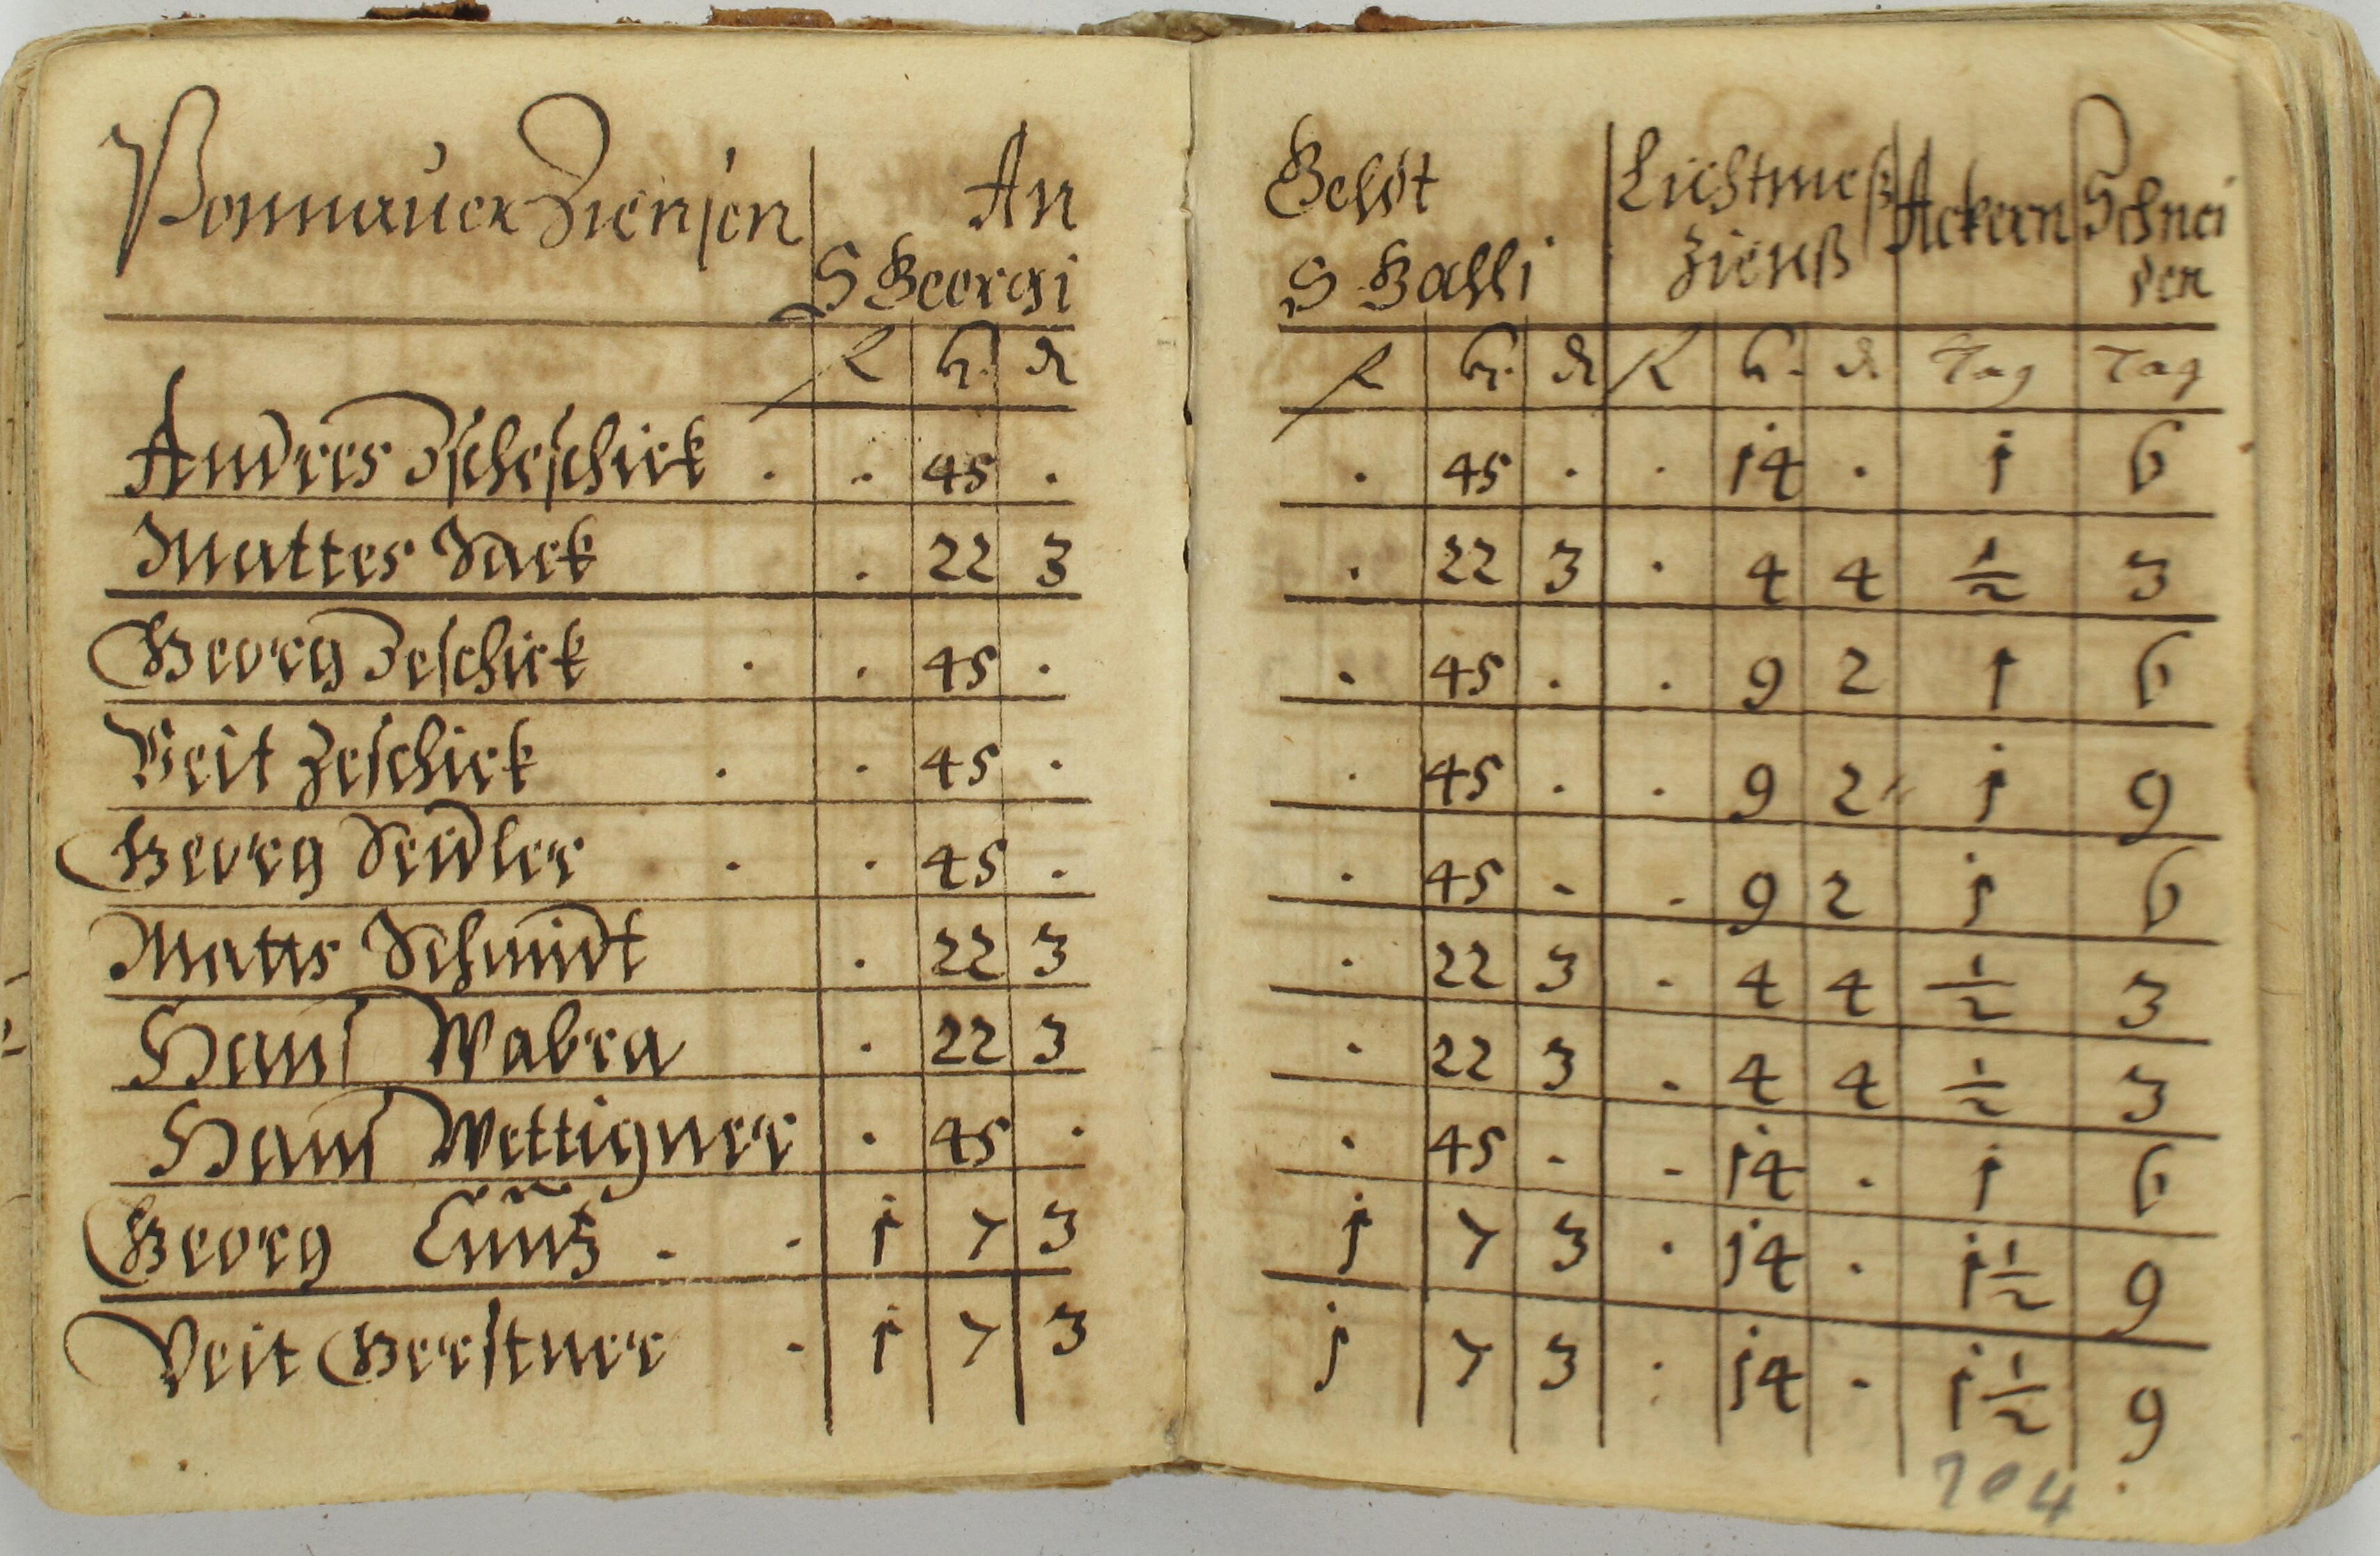 Ponnauer Ziensen An Geldt Lichtmeß Ackern Schnei
S Georgi S Galli Zienß den
R gr. d R gr. d R gr. d Tag Tag
Andres Zscheschick . . 45 . . 45 . . 14 . 1 6
Mattes Sack . 22 3 . 22 3 . 4 4 ½ 3
Georg Zeschick . . 45 . . 45 . . 9 2 1 6
Veit Zeschick . . 45 . . 45 . . 9 2 1 9
Georg Seidler . . 45 . . 45 . . 9 2 1 6
Mattes Schmidt . 22 3 . 22 3 . 4 4 ½ 3
Hanß Wabra . 22 3 . 22 3 . 4 4 ½ 3
Hanß Wettigner . 45 . . 45 . . 14 . 1 6
Georg . . 1 7 3 1 7 3 . 14 . 1½ 9
Veit Gerstner . 1 7 3 1 7 3 . 14 . 1½ 9
204